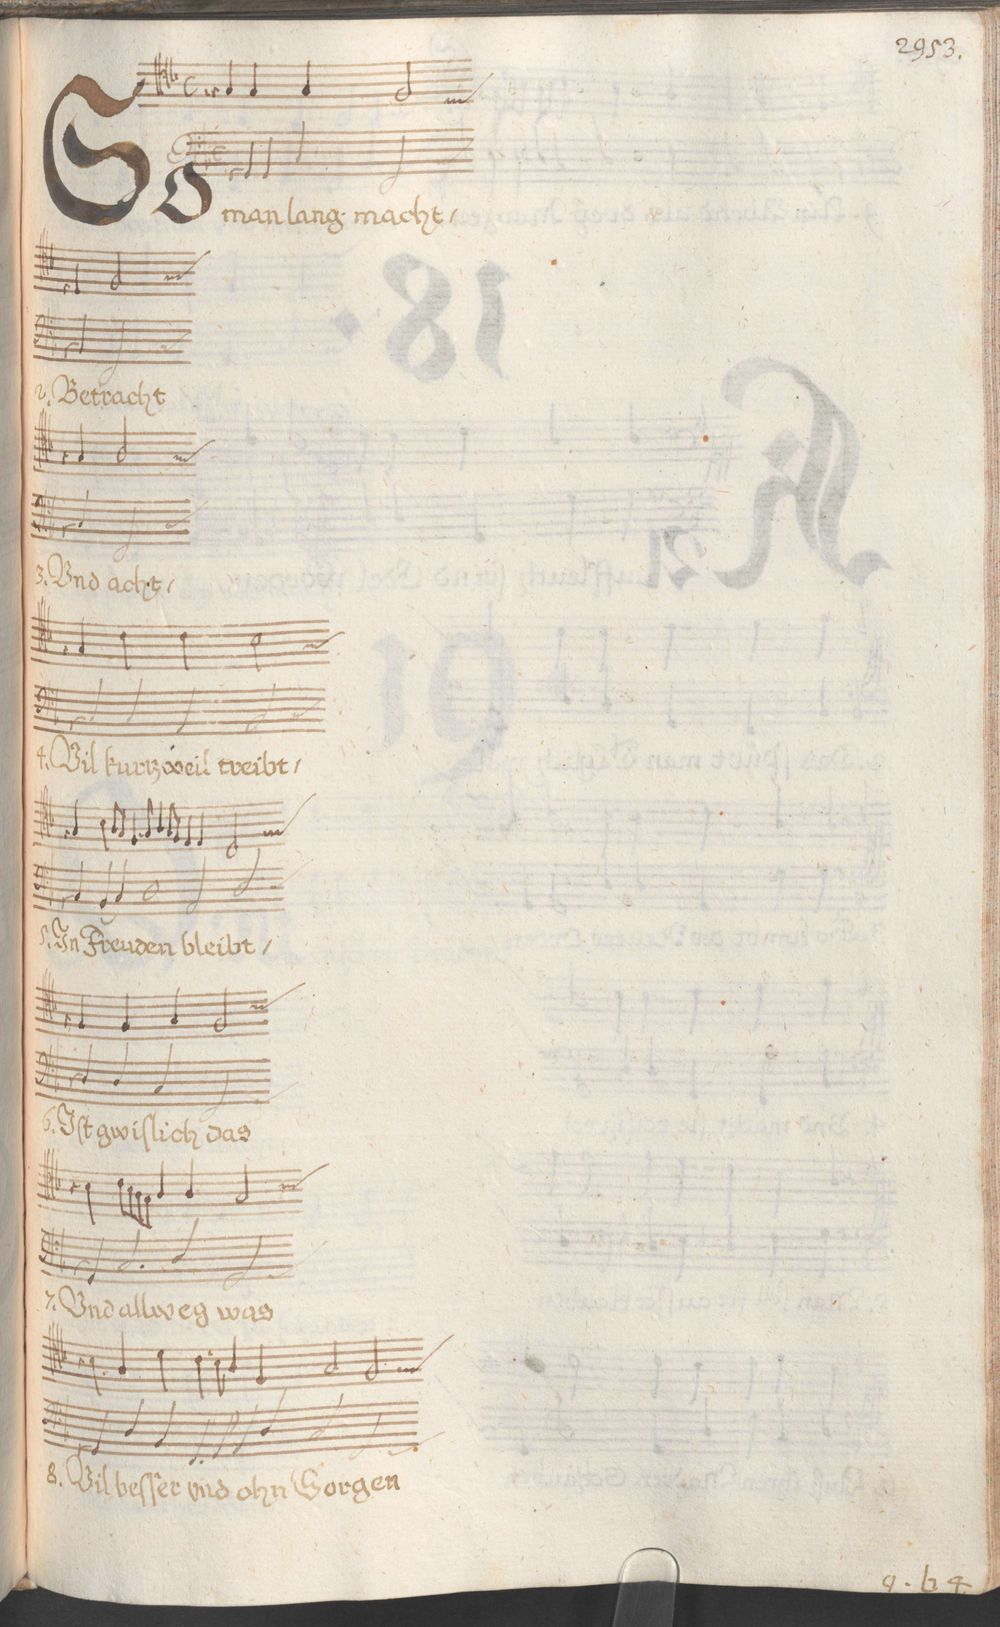 2953.
SO man lang macht /
2. Betracht
3. Vnd acht /
4. Vil kurtzweil treibt /
5. In Freuden bleibt /
6. Ist gwislich das
7. Vnd allweg was
8. Vil besser vnd ohn Sorgen